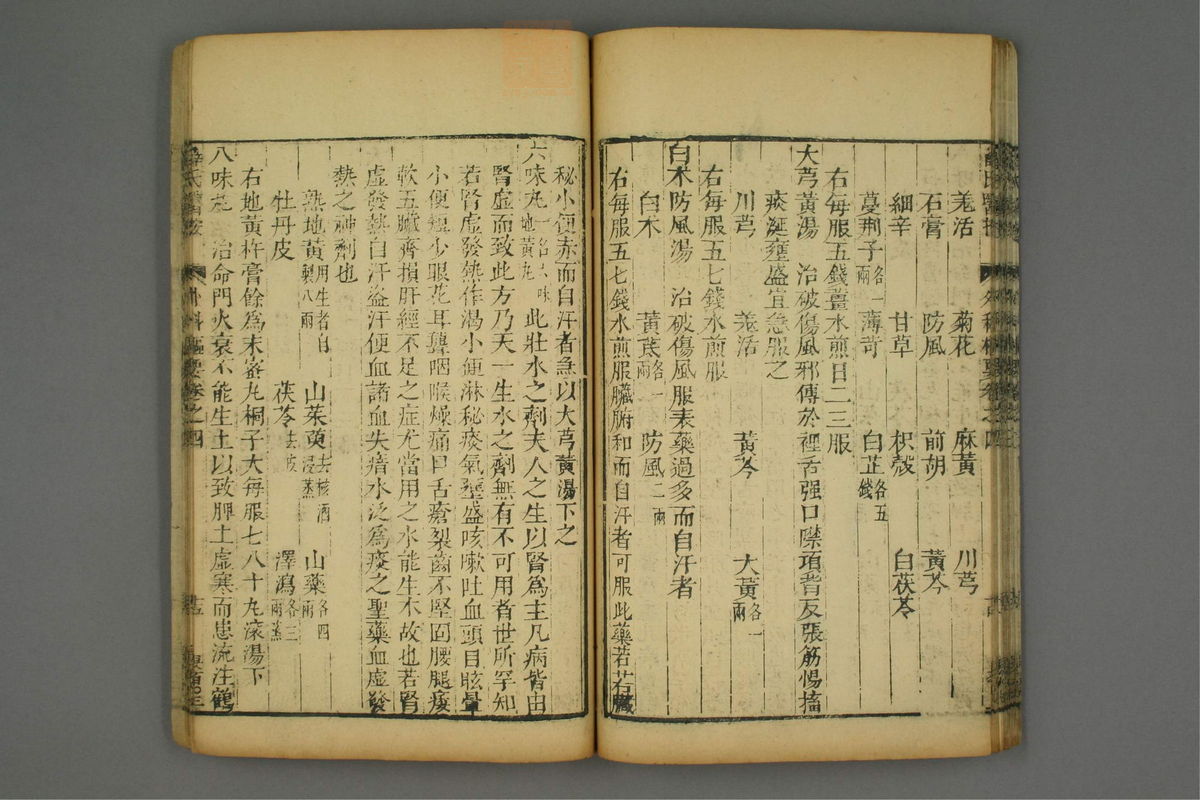 羗活　菊花　麻黃　川芎
石膏　防風　前胡　黃芩
細辛　甘草　枳殼　白茯苓
蔓荆子各一兩　薄荷　白芷各五錢
右每服五錢薑水煎日二三服
大芎黃湯　治破傷風邪傳於裡舌强口噤項背反張筋惕搐
痰涎壅盛宜急服之
川芎　羗活　黃芩　大黃各一兩
右每服五七錢水煎服
白术防風湯　治破傷風服表藥過多而自汗者
白术　黃芪各一兩　防風二兩
右每服五七錢水煎服臟腑和而自汗者可服此藥若若臟
秘小便赤而自汗者急以大芎黃湯下之
六味丸一名六味地黃丸　此壯水之劑夫人之生以腎爲主凡病皆由
腎虛而致此方乃天一生水之劑無有不可用者世所罕知
若腎虛發熱作渴小便淋秘痰氣壅盛咳嗽吐血頭目眩暈
小便短少眼花耳聾咽喉燥痛口舌瘡裂齒不堅固腰腿痿
軟五臟齊損肝經不足之症尤當用之水能生木故也若腎
虛發熱自汗盜汗便血諸血失瘖水泛爲痰之聖藥血虛發
熱之神劑也
熟地黃用生者自製八兩　山茱萸去核酒浸蒸　山藥各四兩
牡丹皮　茯苓去皮　澤瀉各三兩
右地黃杵膏餘爲末蜜丸桐子大每服七八十丸滾湯下
八味丸　治命門火衰不能生土以致脾土虛寒而患流注鶴
薛氏醫按　外科樞要卷之四